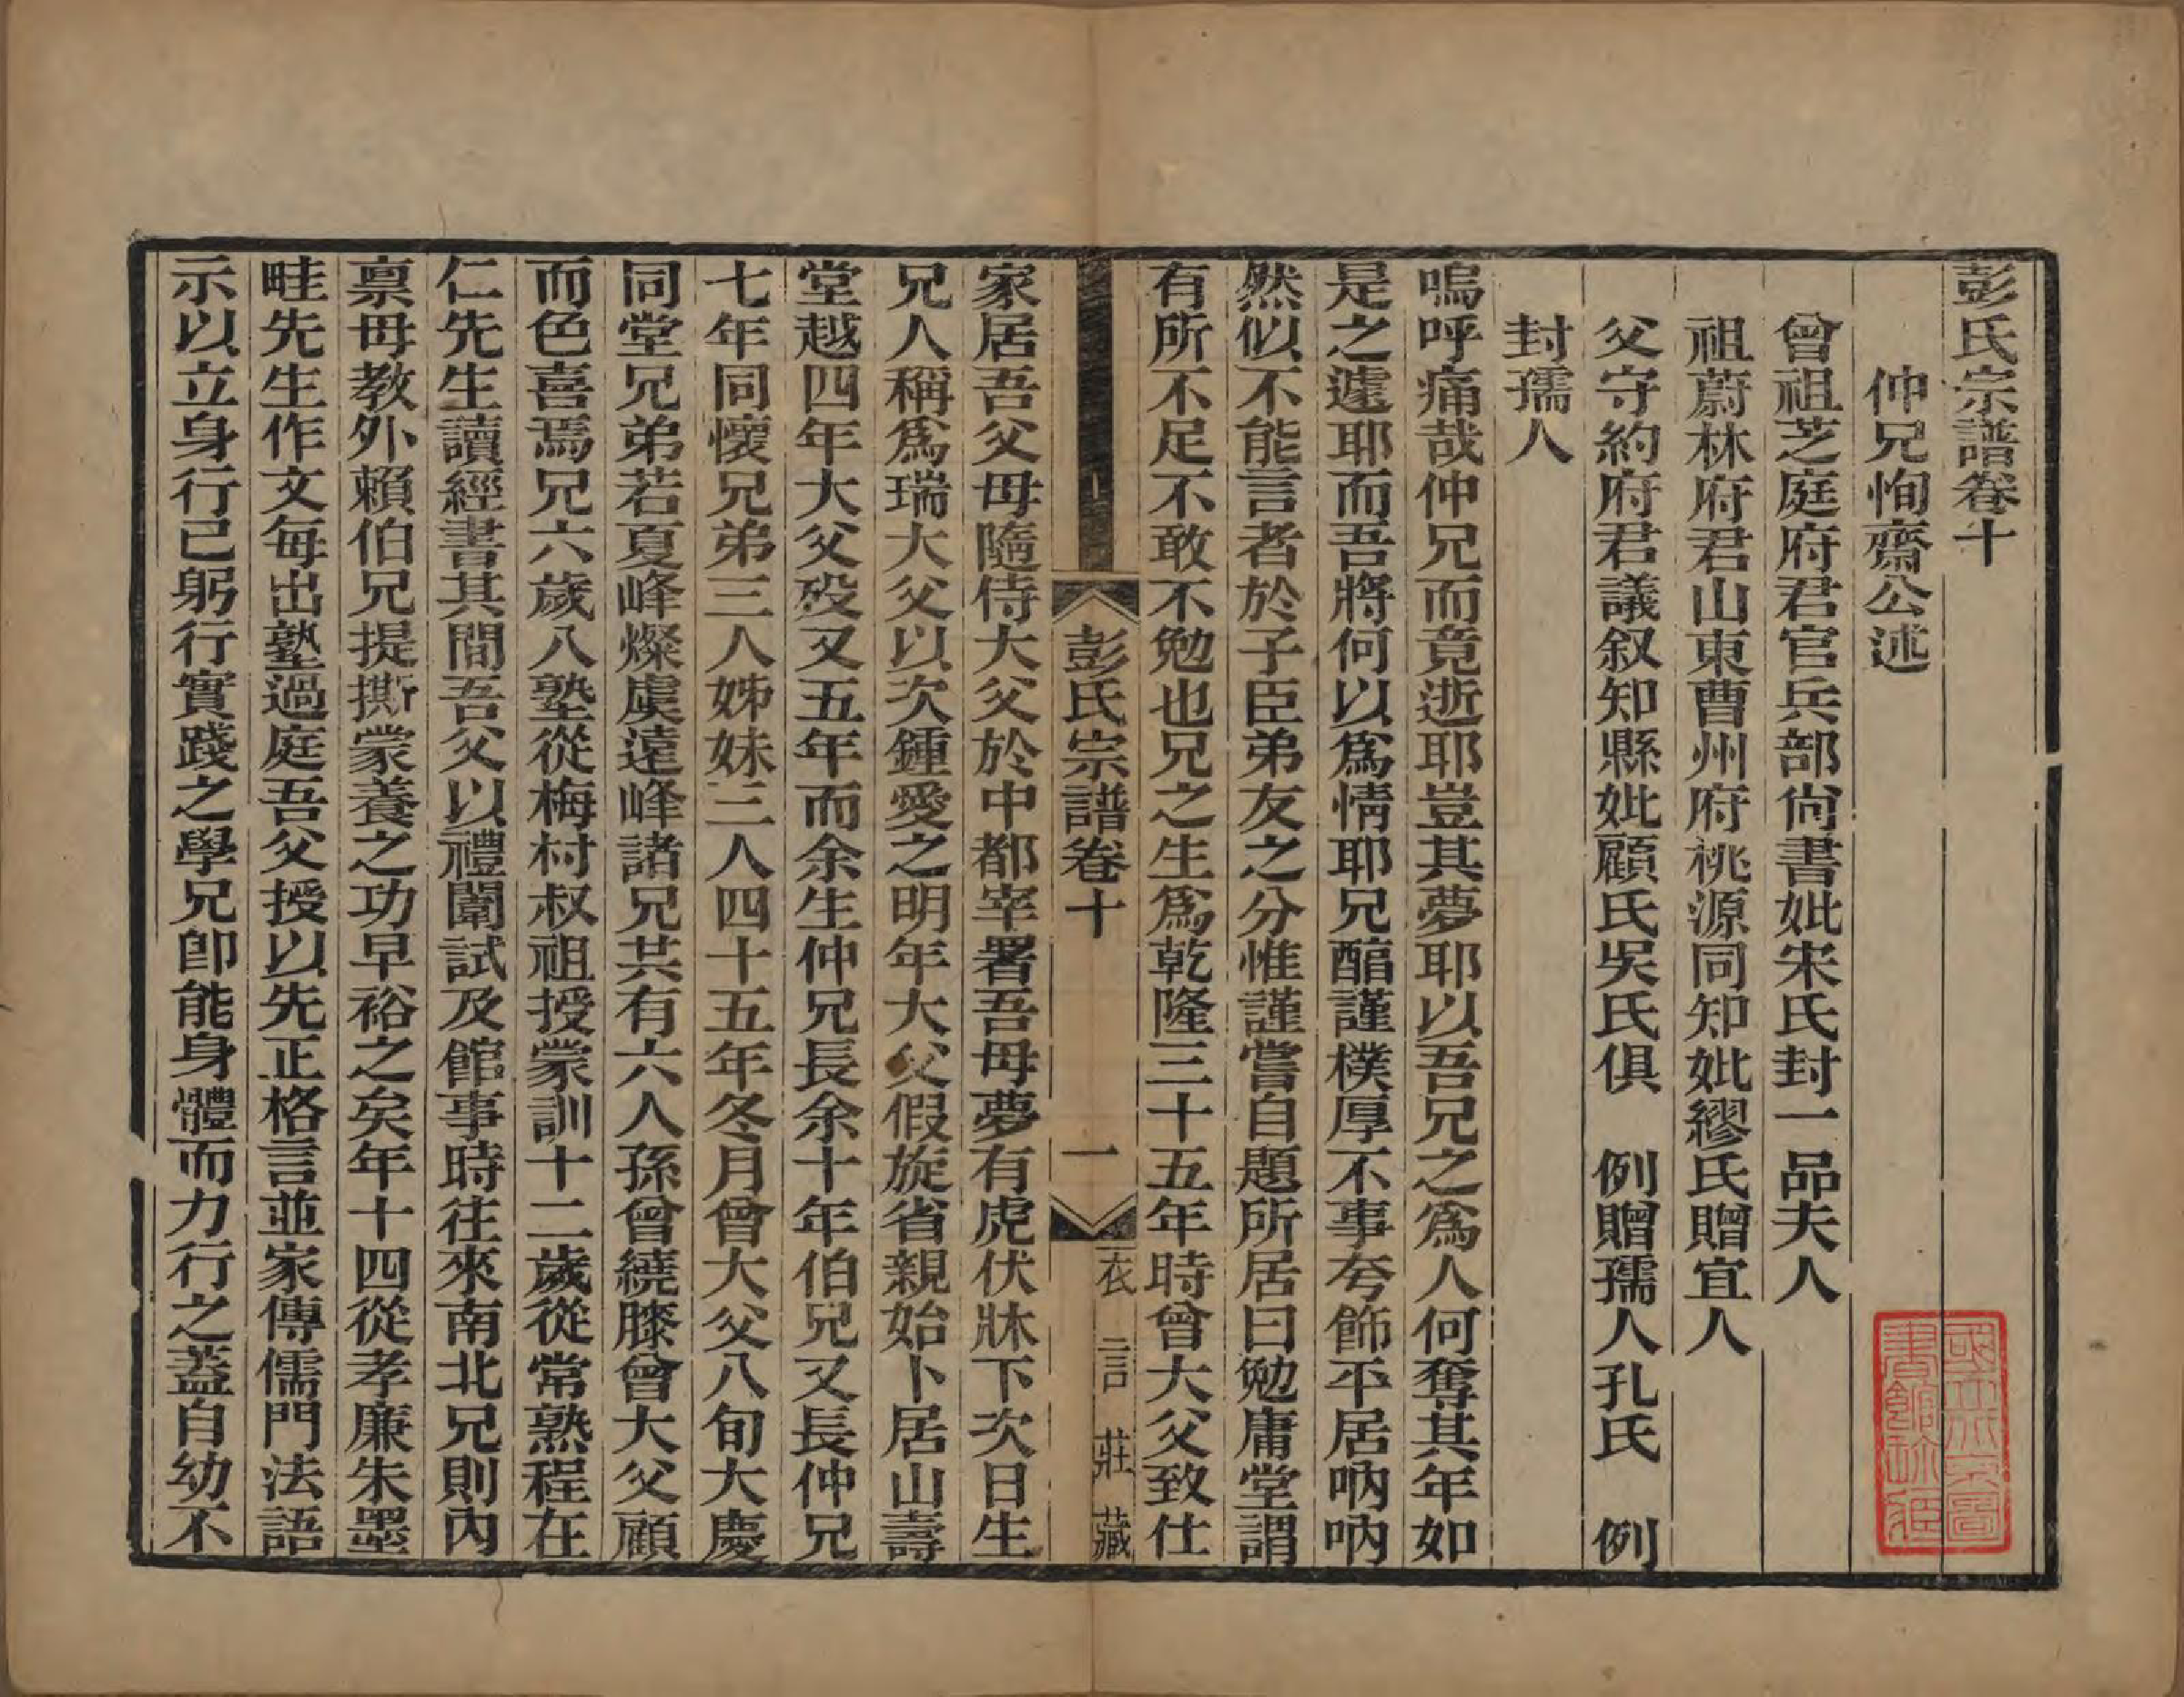 彭氏宗譜卷十
仲兄恂齋公述
曾祖芝庭府君官兵部尚書妣宋氏封一品夫人
祖蔚林府君山東曹州府桃源同知妣繆氏贈宜人
父守約府君議叙知縣妣顧氏吳氏俱　例贈孺人孔氏　例
封孺人
嗚呼痛哉仲兄而竟逝耶豈其夢耶以吾兄之爲人何奪其年如
是之遽耶而吾將何以爲情耶兄醕謹樸厚不事夸飾平居吶吶
然似不能言者於子臣弟友之分惟謹嘗自題所居曰勉庸堂謂
有所不足不敢不勉也兄之生爲乾隆三十五年時曾大父致仕
彭氏宗譜卷十
一
衣言莊藏
家居吾父母隨侍大父於中都宰署吾母夢有虎伏牀下次日生
兄人稱爲瑞大父以次鍾愛之明年大父假旋省親始卜居山壽
堂越四年大父殁又五年而余生仲兄長余十年伯兄又長仲兄
七年同懷兄弟三人姊妹三人四十五年冬月曾大父八旬大慶
同堂兄弟若夏峰燦虞遠峰諸兄共有六人孫曾繞膝曾大父顧
而色喜焉兄六歲入塾從梅村叔祖授蒙訓十二歲從常熟程在
仁先生讀經書其間吾父以禮闈試及館事時往來南北兄則內
禀母教外賴伯兄提撕蒙養之功早裕之矣年十四從孝廉朱墨
畦先生作文每出塾過庭吾父授以先正格言並家傳儒門法語
示以立身行己躬行實踐之學兄卽能身體而力行之蓋自幼不